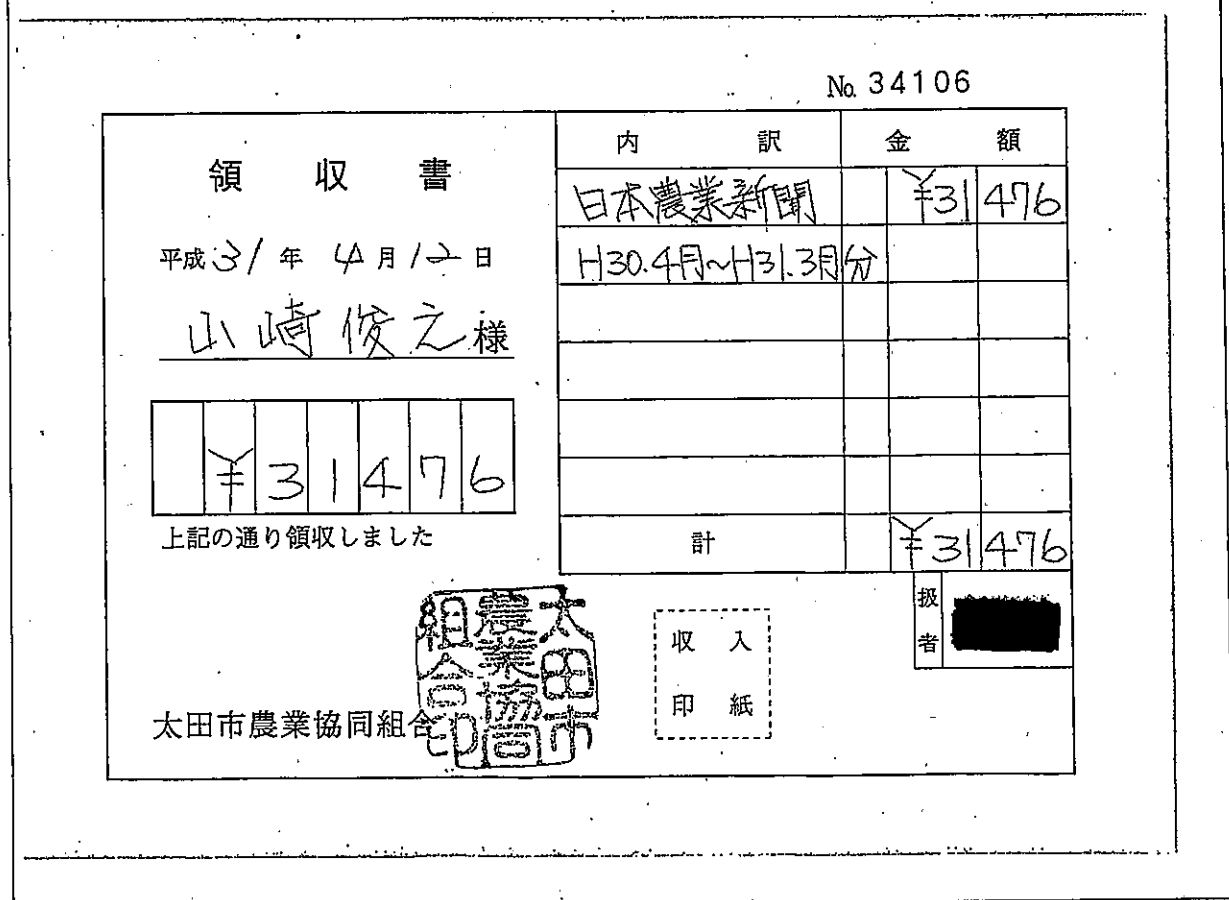 No. 34106
領収書
平成31年4月12日
山崎俊之様
¥31476
上記の通り領収しました
太田市農業協同組合
太田市農業協同組合印
内訳 金額
日本農業新聞 ¥31476
H30.4月~H31.3月分
計 ¥31476
扱者
収入
印紙